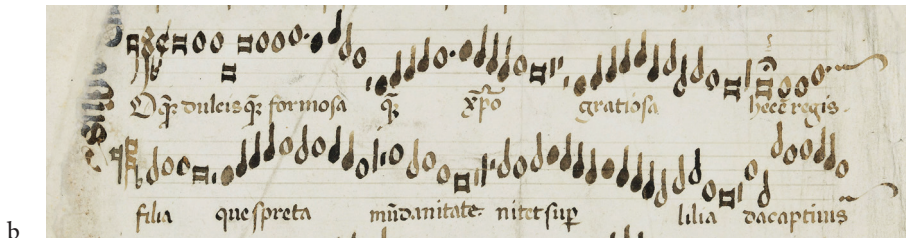 O q̃ꝫ dulcis q̃ꝫ formosa q̃ꝫ xp̃o gratiosa hec ẽ regis
filia que spreta mũdanitate nitet sup̱ lilia da captiuis
b